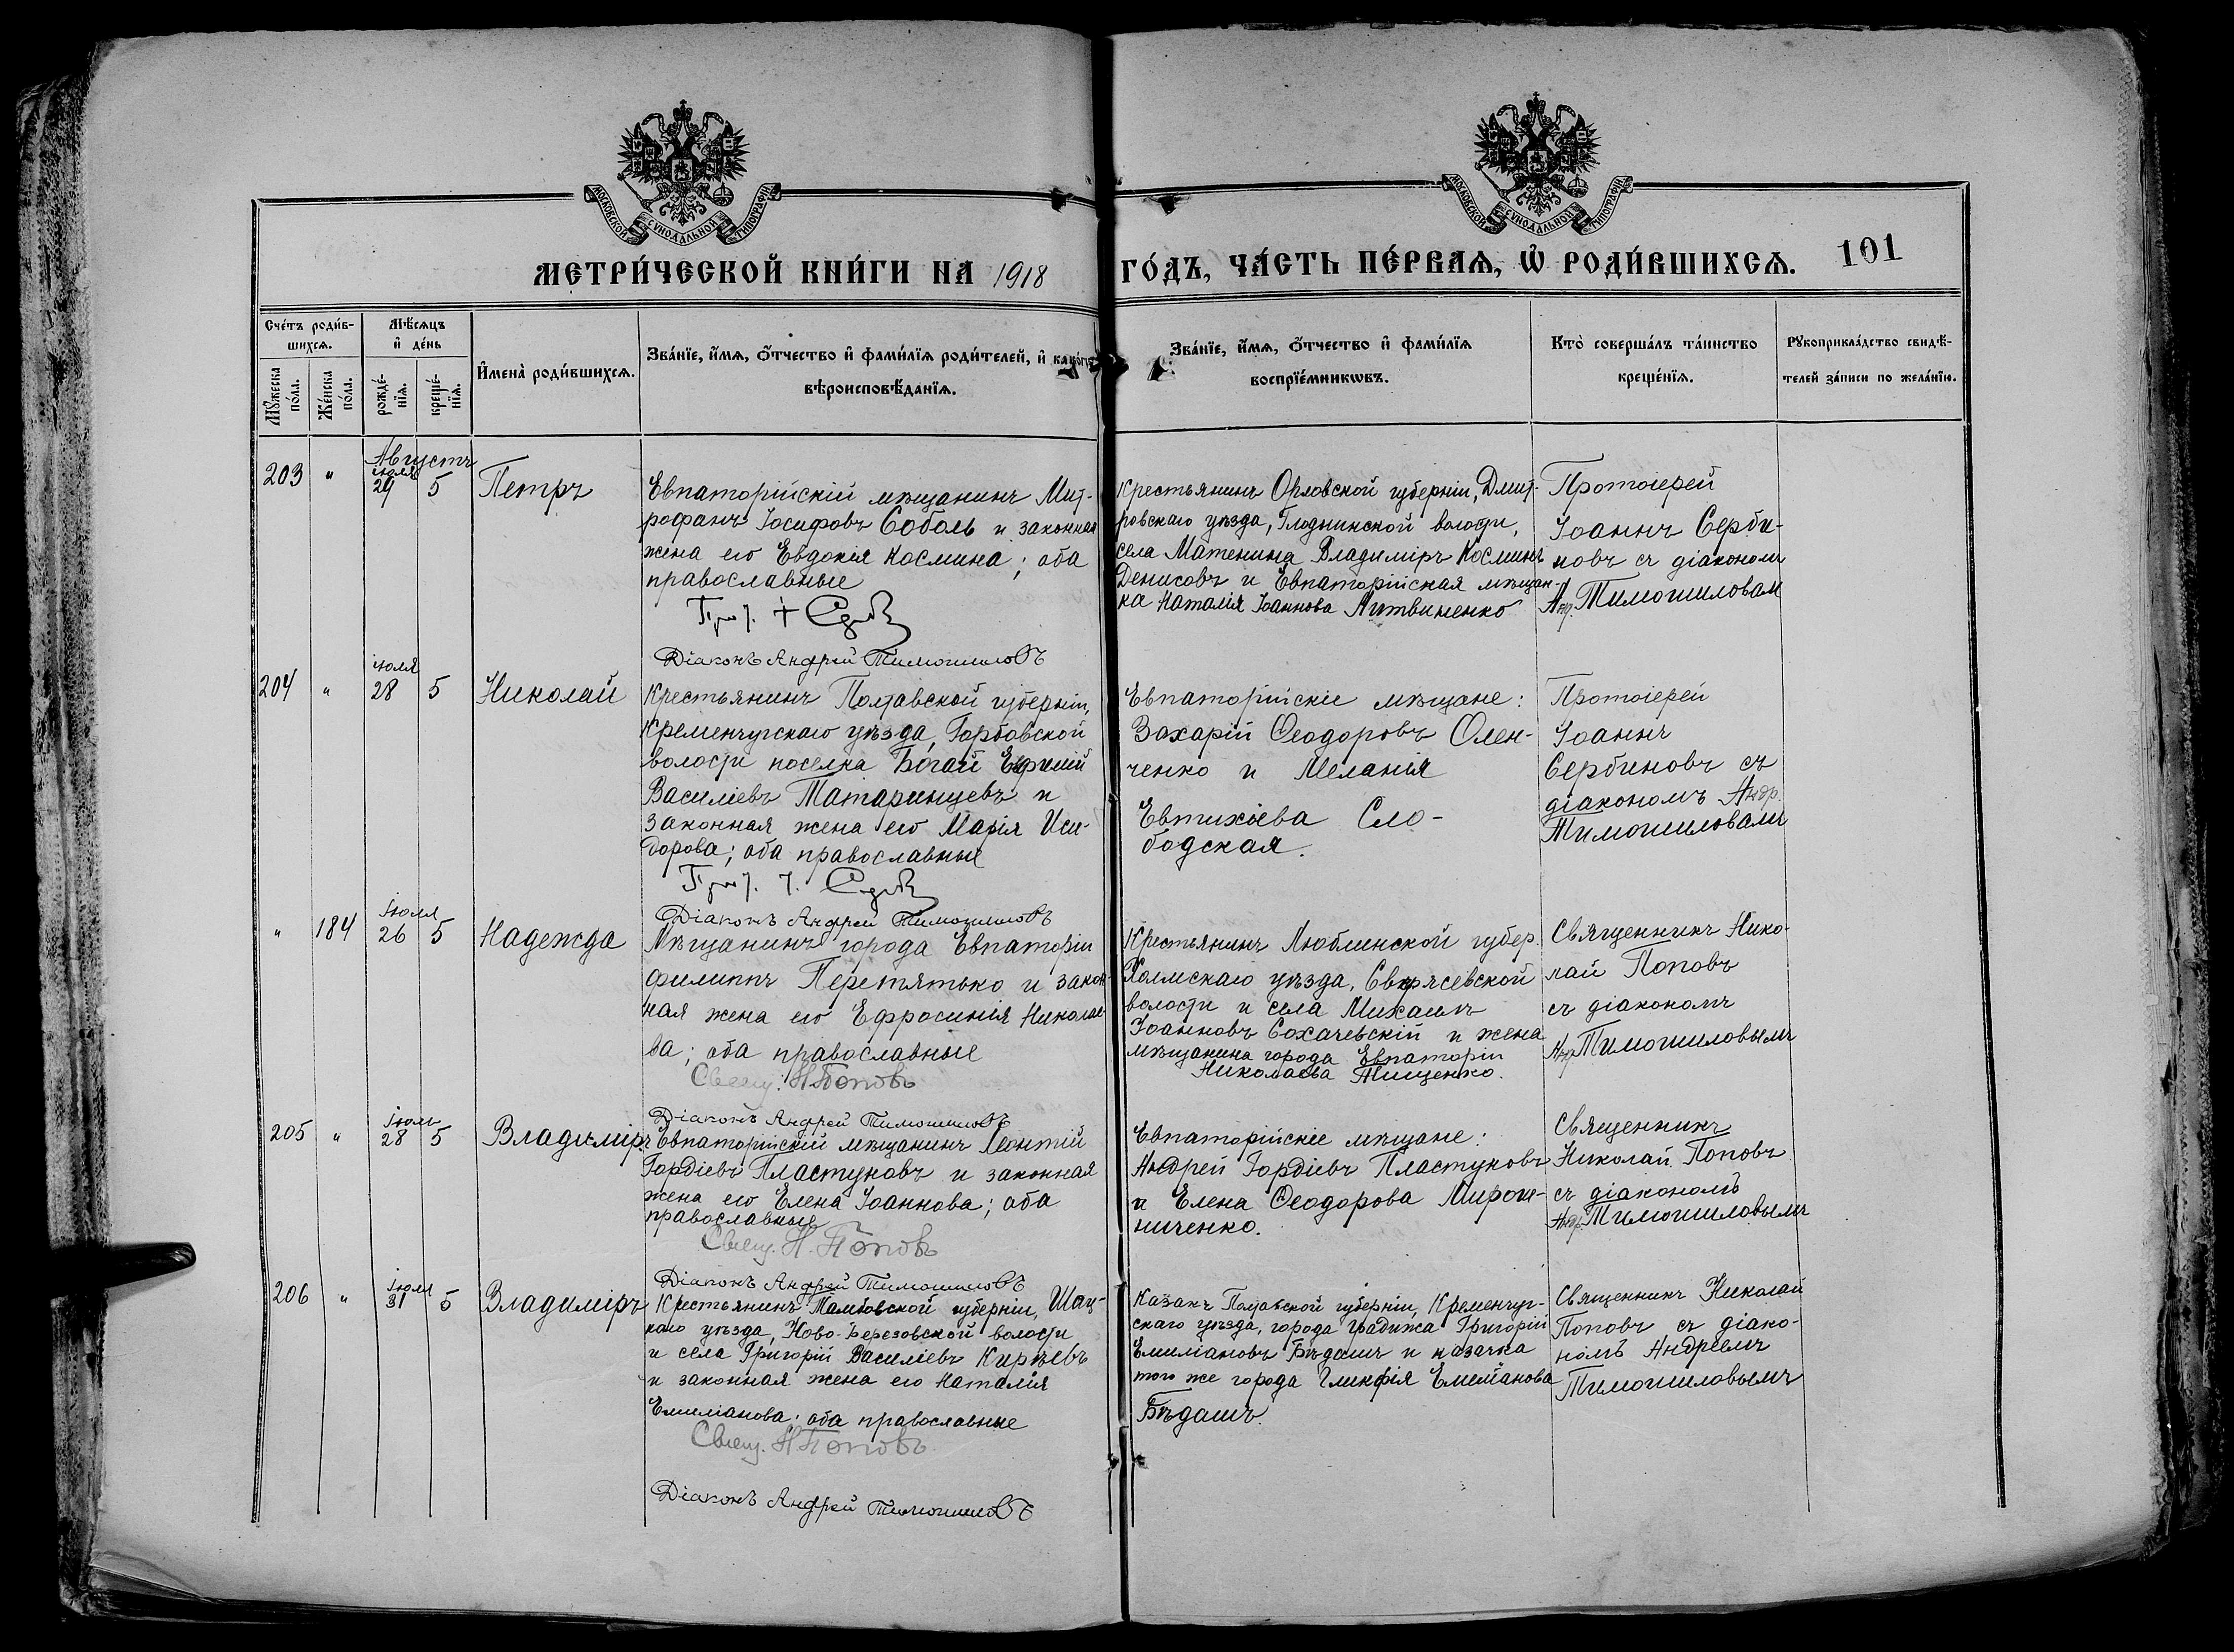 МОСКОВСКОЙ СУНОДАЛЬНОЙ ТИПОГРАФІИ
МОСКОВСКОЙ СУНОДАЛЬНОЙ ТИПОГРАФІИ
МЕТРИ́ЧЕСКОЙ КНИ́ГИ НА 1918 ГО́ДЪ, ЧА́СТЬ ПЕ́РВАѦ, Ѡ҆ РОДИ́ВШИХСѦ. 101
Сче́тъ роди́в-
шихсѧ.
Мꙋ́жеска по́ла.
Же́нска по́ла.
Мѣ́сѧцъ
и҆ де́нь
рожде́-
нїѧ.
креще́-
нїѧ.
И҆мена̀ роди́вшихсѧ.
Зва́нїе, и҆́мѧ, ѻ҆́тчество и҆ фами́лїѧ роди́телей, и҆ како́гѡ
вѣроисповѣ́данїѧ.
Зва́нїе, и҆́мѧ, ѻ҆́тчество и҆ фами́лїѧ
воспрїе́мникѡвъ.
Кто̀ соверша́лъ та́инство
креще́нїѧ.
Рꙋкоприкла́дство свидѣ́-
телей за́писи по жела́нїю.
Августъ
203 " іюля 29 5 Петръ
Евпаторійскій мѣщанинъ Мит-
рофанъ Іосифовъ Соболь и законная
жена его Евдокія Космина; оба
православные
Діаконъ Андрей Тимошиловъ
Крестьянинъ Орловской губерніи, Дмит-
ровскаго уѣзда, Глоднинской волости,
села Матенина Владиміръ Косминъ
Денисовъ и Евпаторійская мѣщан-
ка Наталія Іоаннова Литвиненко
Протоіерей
Іоаннъ Серби-
новъ съ діакономъ
Анд. Тимошиловым
204 " іюля 28 5 Николай
Крестьянинъ Полтавской губерніи,
Кременчугскаго уѣзда, Горбовской
волости поселка Богай Ефимій
Василіевъ Татаринцевъ и
законная жена его Марія Иси-
дорова; оба православные
Діаконъ Андрей Тимошиловъ
Евпаторійскіе мѣщане:
Захарій Ѳеодоровъ Олен-
ченко и Меланія
Евтихіева Сло-
бодская.
Протоіерей
Іоаннъ
Сербиновъ съ
діакономъ Андр.
Тимошиловымъ
" 184 іюля 26 5 Надежда
Мѣщанинъ города Евпаторіи
Филиппъ Перетятько и закон-
ная жена его Ефросинія Николае-
ва; оба православные
Свящ. Н. Поповъ
Діаконъ Андрей Тимошиловъ
Крестьянинъ Люблинской губер.
Холмскаго уѣзда,
волости и села Михаилъ
Іоанновъ Сохачевскій и жена
мѣщанина города Евпаторіи
Николаева Тищенко.
Священникъ Нико-
лай Поповъ
съ діакономъ
Анд. Тимошиловымъ
205 " іюль 28 5 Владиміръ
Евпаторійскій мѣщанинъ Леонтій
Гордіевъ Пластуновъ и законная
жена его Елена Іоаннова; оба
православные
Свящ. Н. Поповъ
Діаконъ Андрей Тимошиловъ
Евпаторійскіе мѣщане:
Андрей Гордіевъ Пластуновъ
и Елена Ѳеодорова Мирош-
ниченко.
Священникъ
Николай Поповъ
съ діакономъ
Андр. Тимошиловымъ
206 " іюля 31 5 Владиміръ
Крестьянинъ Тамбовской губерніи, Шац-
каго уѣзда, Ново-Березовской волости
и села Григорій Василіевъ Киряевъ
и законная жена его Наталія
Емиліанова; оба православные
Свящ. Н. Поповъ
Діаконъ Андрей Тимошиловъ
Казакъ Полтавской губерніи, Кременчуг-
скаго уѣзда, города Градижа Григорій
Емиліановъ Бѣдашъ и казачка
того же города Гликфія Емиліанова
Бѣдашъ.
Священникъ Николай
Поповъ съ діако-
номъ Андреемъ
Тимошиловымъ